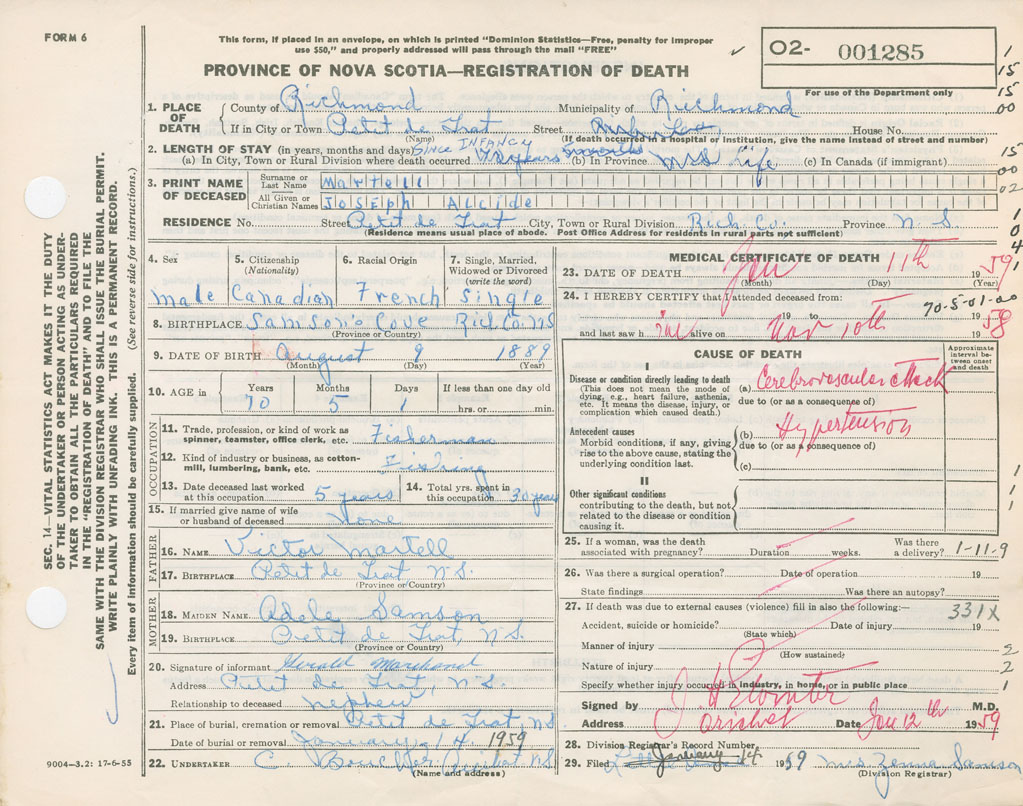 FORM 6
This form, if placed in an envelope, on which is printed "Dominion Statistics—Free, penalty for improper
use $50," and properly addressed will pass through the mail "FREE"
PROVINCE OF NOVA SCOTIA—REGISTRATION OF DEATH
O2- 001285
For use of the Department only
1
15
15
00
15
00
02
1
0
4
1
SEC. 14—VITAL STATISTICS ACT MAKES IT THE DUTY
OF THE UNDERTAKER OR PERSON ACTING AS UNDER-
TAKER TO OBTAIN ALL THE PARTICULARS REQUIRED
IN THE "REGISTRATION OF DEATH" AND TO FILE THE
SAME WITH THE DIVISION REGISTRAR WHO SHALL ISSUE THE BURIAL PERMIT.
WRITE PLAINLY WITH UNFADING INK. THIS IS A PERMANENT RECORD.
Every item of Information should be carefully supplied. (See reverse side for instructions.)
1. PLACE OF DEATH
County of Richmond Municipality of Richmond
If in City or Town Petit de Grat Street House No.
(Name) (If death occurred in a hospital or institution, give the name instead of street and number)
2. LENGTH OF STAY (in years, months and days) SINCE INFANCY
(a) In City, Town or Rural Division where death occurred years months (b) In Province Life (c) In Canada (if immigrant)
3. PRINT NAME OF DECEASED
Surname or Last Name Martell
All Given or Christian Names JOSEPH Alcide
RESIDENCE No. Street Petit de Grat City, Town or Rural Division Rich. Co. Province N S.
(Residence means usual place of abode. Post Office Address for residents in rural parts not sufficient)
4. Sex
male
5. Citizenship (Nationality)
Canadian
6. Racial Origin
French
7. Single, Married, Widowed or Divorced (write the word)
Single
8. BIRTHPLACE Samson's Cove Rich Co NS
(Province or Country)
9. DATE OF BIRTH August 9 1889
(Month) (Day) (Year)
10. AGE in Years Months Days If less than one day old
70 5 1 hrs. or min.
OCCUPATION
11. Trade, profession, or kind of work as
spinner, teamster, office clerk, etc. Fisherman
12. Kind of industry or business, as cotton-
mill, lumbering, bank, etc. Fishing
13. Date deceased last worked
at this occupation 5 years
14. Total yrs. spent in
this occupation 30 years
15. If married give name of wife
or husband of deceased None
FATHER
16. NAME Victor Martell
17. BIRTHPLACE Petit de Grat N.S.
(Province or Country)
MOTHER
18. MAIDEN NAME Adele Samson
19. BIRTHPLACE Petit de Grat, N.S.
(Province or Country)
20. Signature of informant Gerald Marchand
Address Petit de Grat, N.S.
Relationship to deceased nephew
21. Place of burial, cremation or removal Petit de Grat, NS
Date of burial or removal January 14 1959
22. UNDERTAKER C. Boucher Arichat N.S
(Name and address)
9004—3.2: 17-6-55
MEDICAL CERTIFICATE OF DEATH
23. DATE OF DEATH Jan 11th 1959
(Month) (Day) (Year)
24. I HEREBY CERTIFY that I attended deceased from: 70-5-01-00
19 to
and last saw h im alive on Nov 10th 1958
CAUSE OF DEATH
Approximate interval between onset and death
I
Disease or condition directly leading to death
(This does not mean the mode of
dying, e.g., heart failure, asthenia,
etc. It means the disease, injury, or
complication which caused death.)
(a) Cerebrovascular attack
due to (or as a consequence of)
Antecedent causes
Morbid conditions, if any, giving
rise to the above cause, stating the
underlying condition last.
(b) Hypertension
due to (or as a consequence of)
(c)
II
Other significant conditions
contributing to the death, but not
related to the disease or condition
causing it.
1
1
1
25. If a woman, was the death
associated with pregnancy? Duration weeks. Was there
a delivery? 1-11-9
26. Was there a surgical operation? Date of operation 19
State findings Was there an autopsy?
27. If death was due to external causes (violence) fill in also the following:— 331X
Accident, suicide or homicide? Date of injury 19
(State which)
Manner of injury 2
(How sustained)
Nature of injury 2
Specify whether injury occurred in industry, in home, or in public place 1
Signed by M.D.
Address Arichat Date Jan 12th 1959
28. Division Registrar's Record Number
29. Filed January 14 1959 Mrs. Zenna Samson
(Division Registrar)